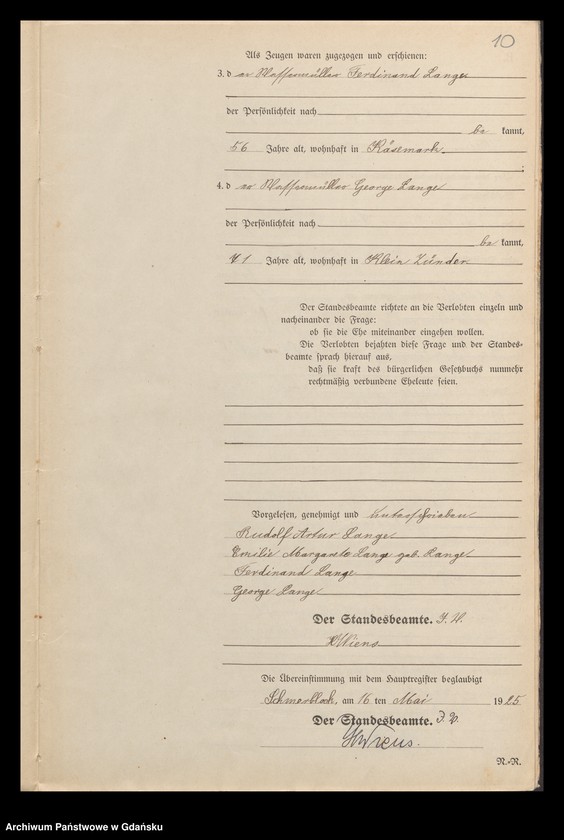 10
Als Zeugen waren zugezogen und erschienen:
3. d er Ferdinand Lange
der Persönlichkeit nach
be kannt,
56 Jahre alt, wohnhaft in Käsemark.
;
4. d er George Lange
der Persönlichkeit nach
be kannt,
Jahre alt, wohnhaft in Klein Zünder
Der Standesbeamte richtete an die Verlobten einzeln und
nacheinander die Frage:
ob sie die Ehe miteinander eingehen wollen.
Die Verlobten bejahten diese Frage und der Standes-
beamte sprach hierauf aus,
daß sie kraft des bürgerlichen Gesetzbuchs nunmehr
rechtmäßig verbundene Eheleute seien.
Vorgelesen, genehmigt und unterschrieben
Rudolf Artur Lange
Emilie Margarete Lange geb. Lange
Ferdinand Lange
George Lange
Der Standesbeamte. J. V.
HWiens
Die Übereinstimmung mit dem Hauptregister beglaubigt
Schmerblock, am 16 ten Mai 1925
Der Standesbeamte. J. V.
HWiens.
N.-R.
Archiwum Państwowe w Gdańsku